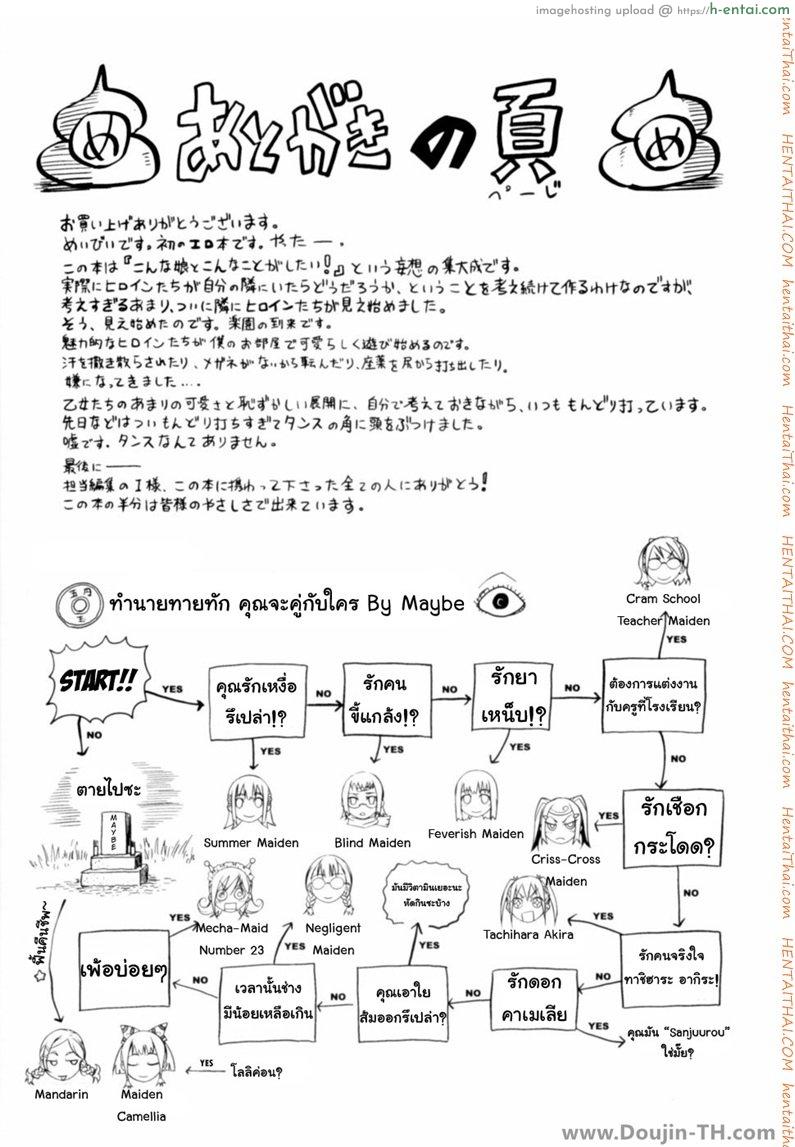 imagehosting upload @ https://h-entai.com
め あとがきの頁 め
ぺーじ
お買い上げありがとうございます。
めいびいです。初のエロ本です。やったー。
この本は『こんな娘とこんなことがしたい!』という妄想の集大成です。
実際にヒロインたちが自分の隣にいたらどうだろうか、ということを考え続けて作るわけなのですが、
考えすぎるあまり、ついに隣にヒロインたちが見え始めました。
そう、見え始めたのです。楽園の到来です。
魅力的なヒロインたちが僕のお部屋で可愛らしく遊び始めるのです。
汗を撒き散らされたり、メガネがないから転んだり、座薬を尻から打ち出したり。
嫌になってきました....
乙女たちのあまりの可愛さと恥ずかしい展開に、自分で考えておきながら、いつももんどり打っています。
先日などはついもんどり打ちすぎてタンスの角に頭をぶつけました。
嘘です。タンスなんてありません。
最後に——
担当編集のI様、この本に携わって下さった全ての人にありがとう!
この本の半分は皆様のやさしさで出来ています。
五円玉
ทำนายทายทัก คุณจะคู่กับใคร By Maybe
Cram School
Teacher Maiden
YES
START!!
YES
คุณรักเหงื่อ
รึเปล่า!?
NO
รักคน
ขี้แกล้ง!?
NO
รักยา
เหน็บ!?
NO
ต้องการแต่งงาน
กับครูที่โรงเรียน?
NO
YES
YES
YES
NO
ตายไปซะ
MAYBE
Summer Maiden
Blind Maiden
Feverish Maiden
Criss-Cross
Maiden
YES
รักเชือก
กระโดด?
NO
Mecha-Maid
Number 23
YES
Negligent
Maiden
YES
มันมีวิตามินเยอะนะ
หัดกินซะบ้าง
YES
Tachihara Akira
YES
รักคนจริงใจ
ทาชิฮาระ อากิระ!
NO
รักดอก
คาเมเลีย
NO
คุณเอาใย
ส้มออกรึเปล่า?
NO
เวลานั้นช่าง
มีน้อยเหลือเกิน
NO
เพ้อบ่อยๆ
YES
คุณมัน “Sanjuurou”
ใช่มั๊ย?
☆ ฟื้นคืนชีพ~
Mandarin
Maiden
Camellia
YES
โลลิค่อน?
www.Doujin-TH.com
hentaiThai.com HENTAITHAI.COM hentaithai.com HentaiThai.com HENTAITHAI.COM hentaithai.com HentaiThai.com HENTAITHAI.COM hentaithai